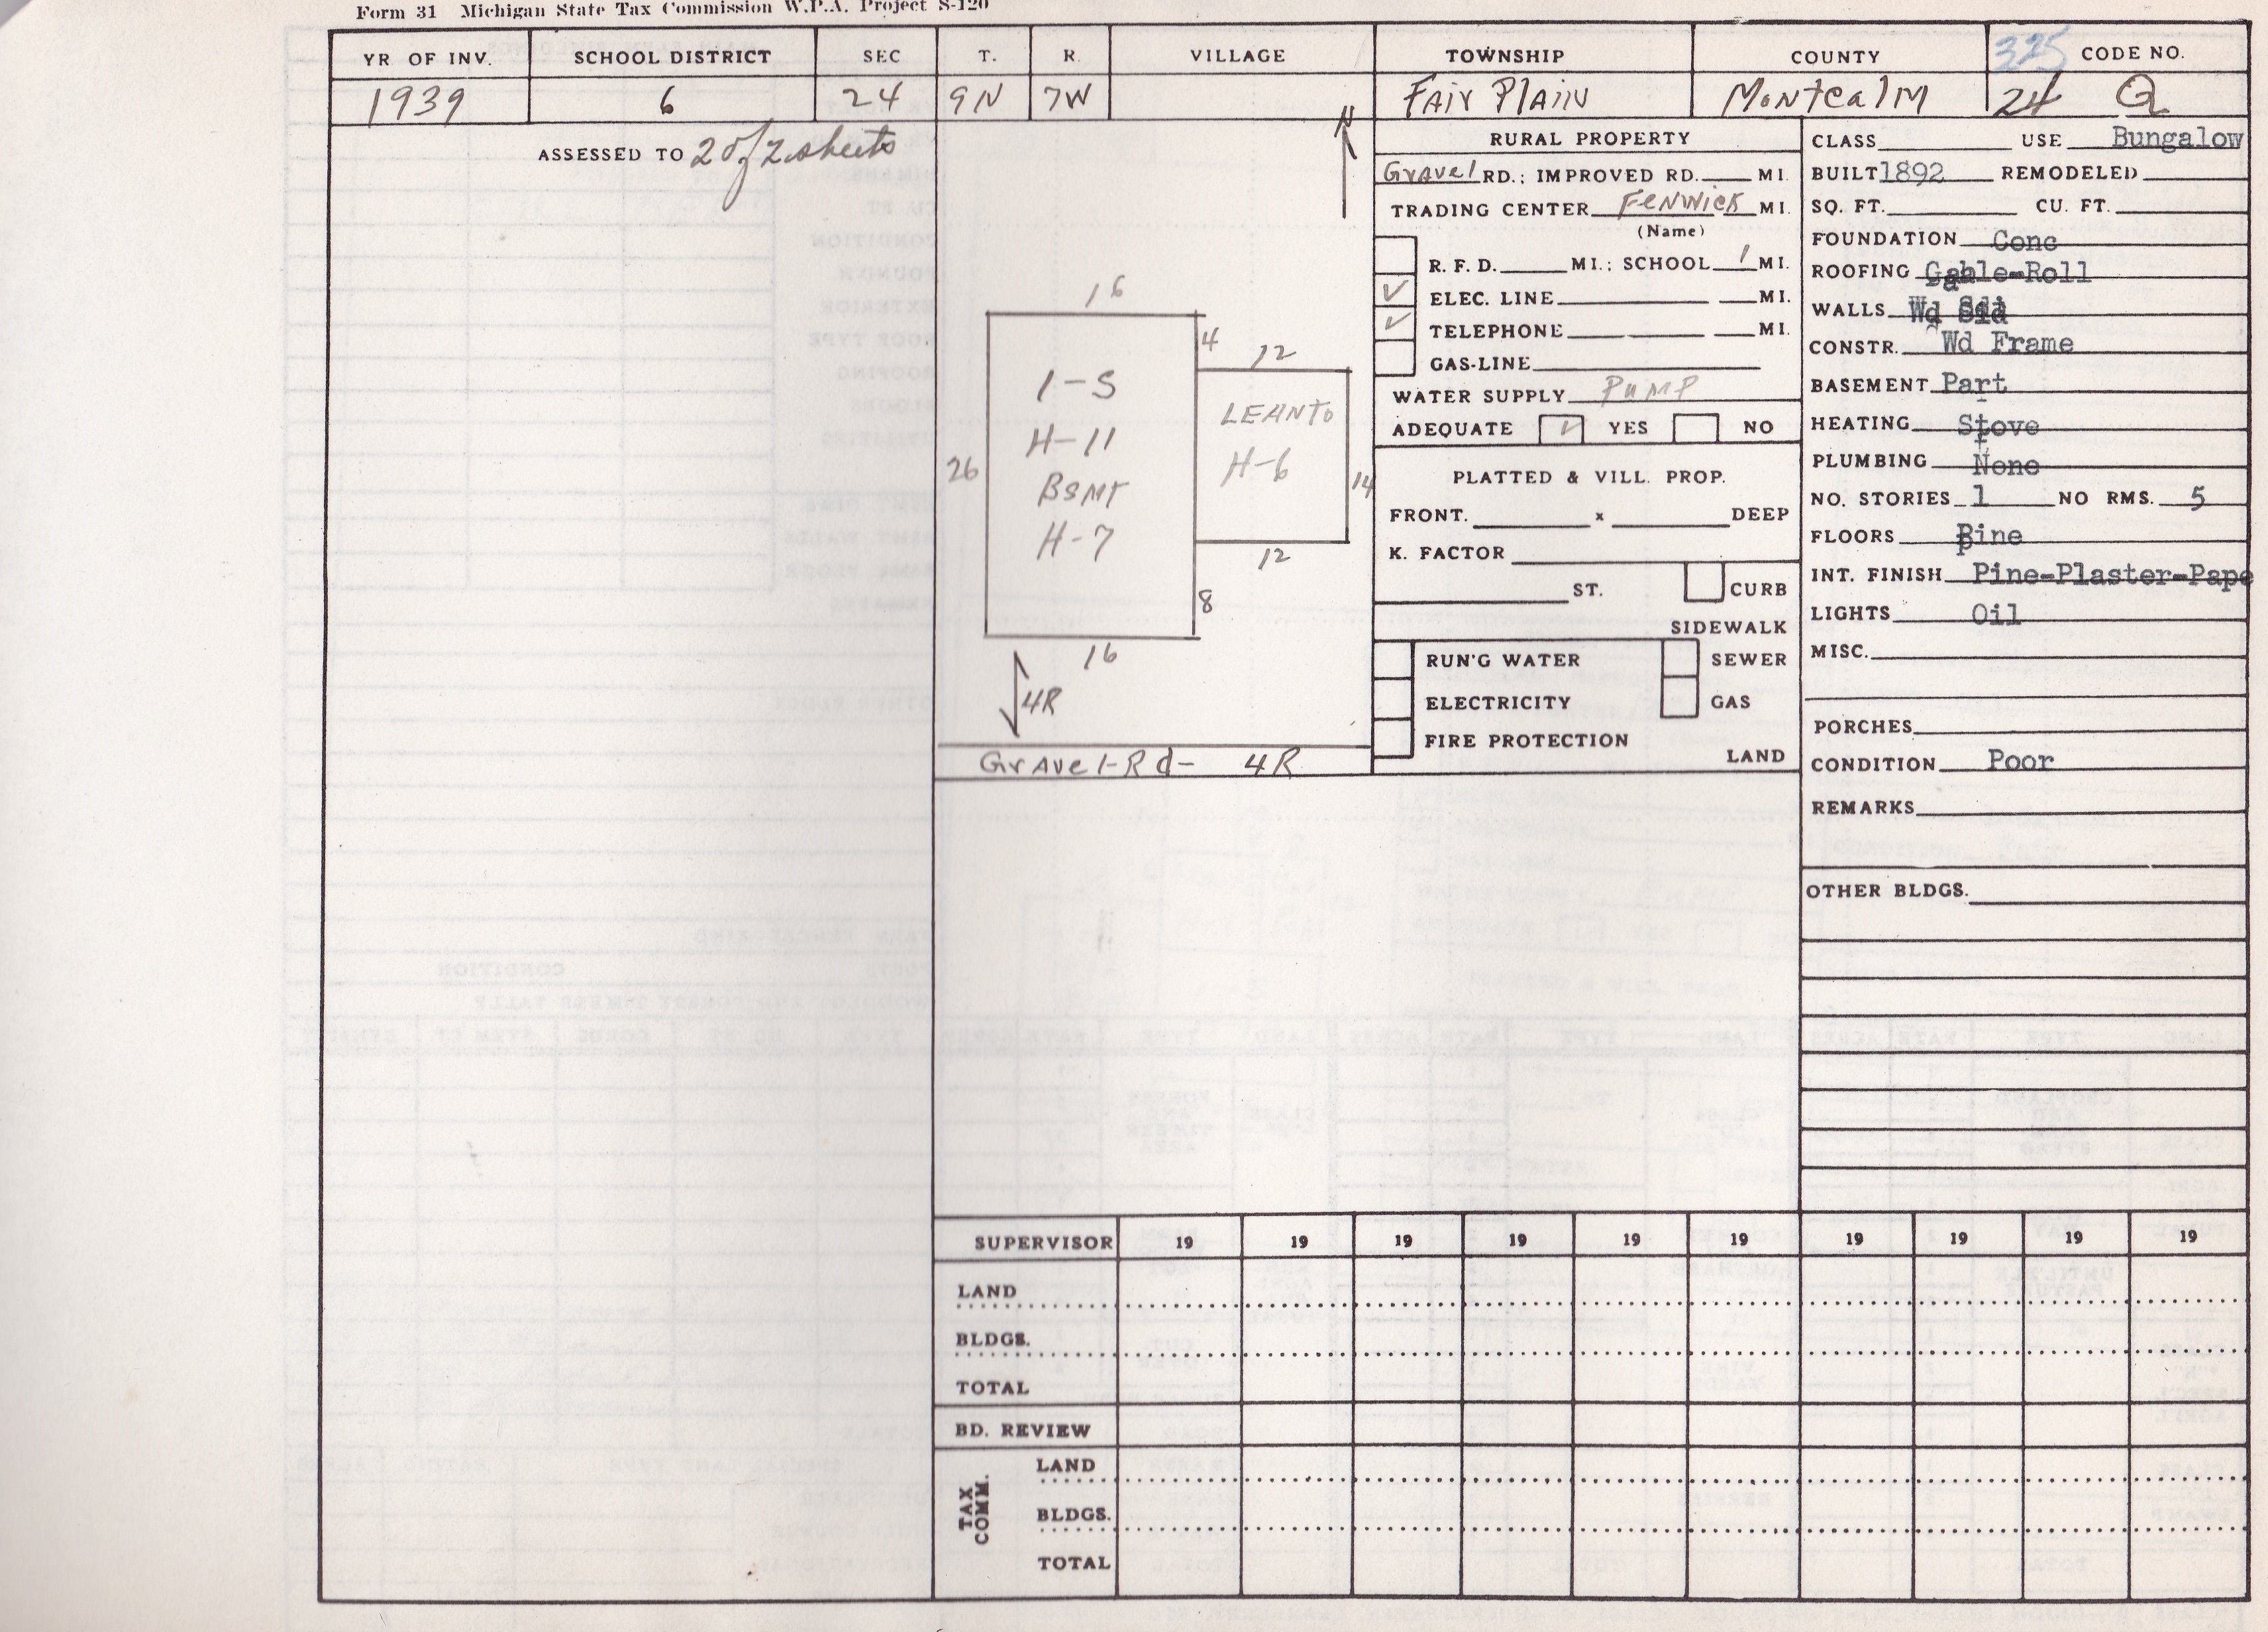 Form 31 Michigan State Tax Commission W.P.A. Project S-120
YR. OF INV. SCHOOL DISTRICT SEC T. R. VILLAGE TOWNSHIP COUNTY 325 CODE NO.
1939 6 24 9N 7W Fair Plain Montcalm 24 Q
ASSESSED TO 2 of 2 sheets
N
16
4
12
1-S
H-11
BSMT
H-7
26
LEANTO
H-6
14
12
8
16
4R
Gravel-Rd- 4R
RURAL PROPERTY
Gravel RD.; IMPROVED RD. MI.
TRADING CENTER Fenwick MI.
(Name)
R. F. D. MI.; SCHOOL 1 MI.
ELEC. LINE MI.
TELEPHONE MI.
GAS-LINE
WATER SUPPLY PUMP
ADEQUATE YES NO
PLATTED & VILL. PROP.
FRONT. x DEEP
K. FACTOR
ST. CURB
SIDEWALK
RUN'G WATER SEWER
ELECTRICITY GAS
FIRE PROTECTION
LAND
CLASS USE Bungalow
BUILT 1892 REMODELED
SQ. FT. CU. FT.
FOUNDATION Conc
ROOFING Gable-Roll
WALLS Wd Sid
CONSTR. Wd Frame
BASEMENT Part
HEATING Stove
PLUMBING None
NO. STORIES 1 NO RMS. 5
FLOORS Pine
INT. FINISH Pine-Plaster-Pape
LIGHTS Oil
MISC.
PORCHES
CONDITION Poor
REMARKS
OTHER BLDGS.
SUPERVISOR 19 19 19 19 19 19 19 19 19 19
LAND
BLDGS.
TOTAL
BD. REVIEW
TAX COMM.
LAND
BLDGS.
TOTAL